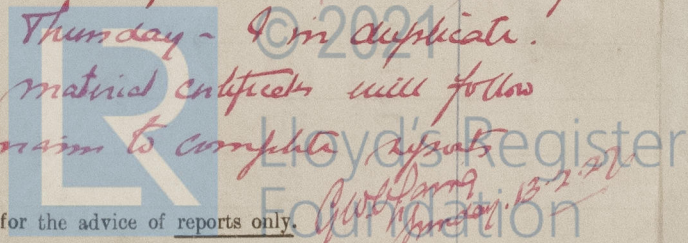 Thursday - & in duplicate.
material certificates will follow
to complete reports
for the advice of reports only.
Sunday. 13.2.27
© 2021
Lloyd's Register
Foundation
LR